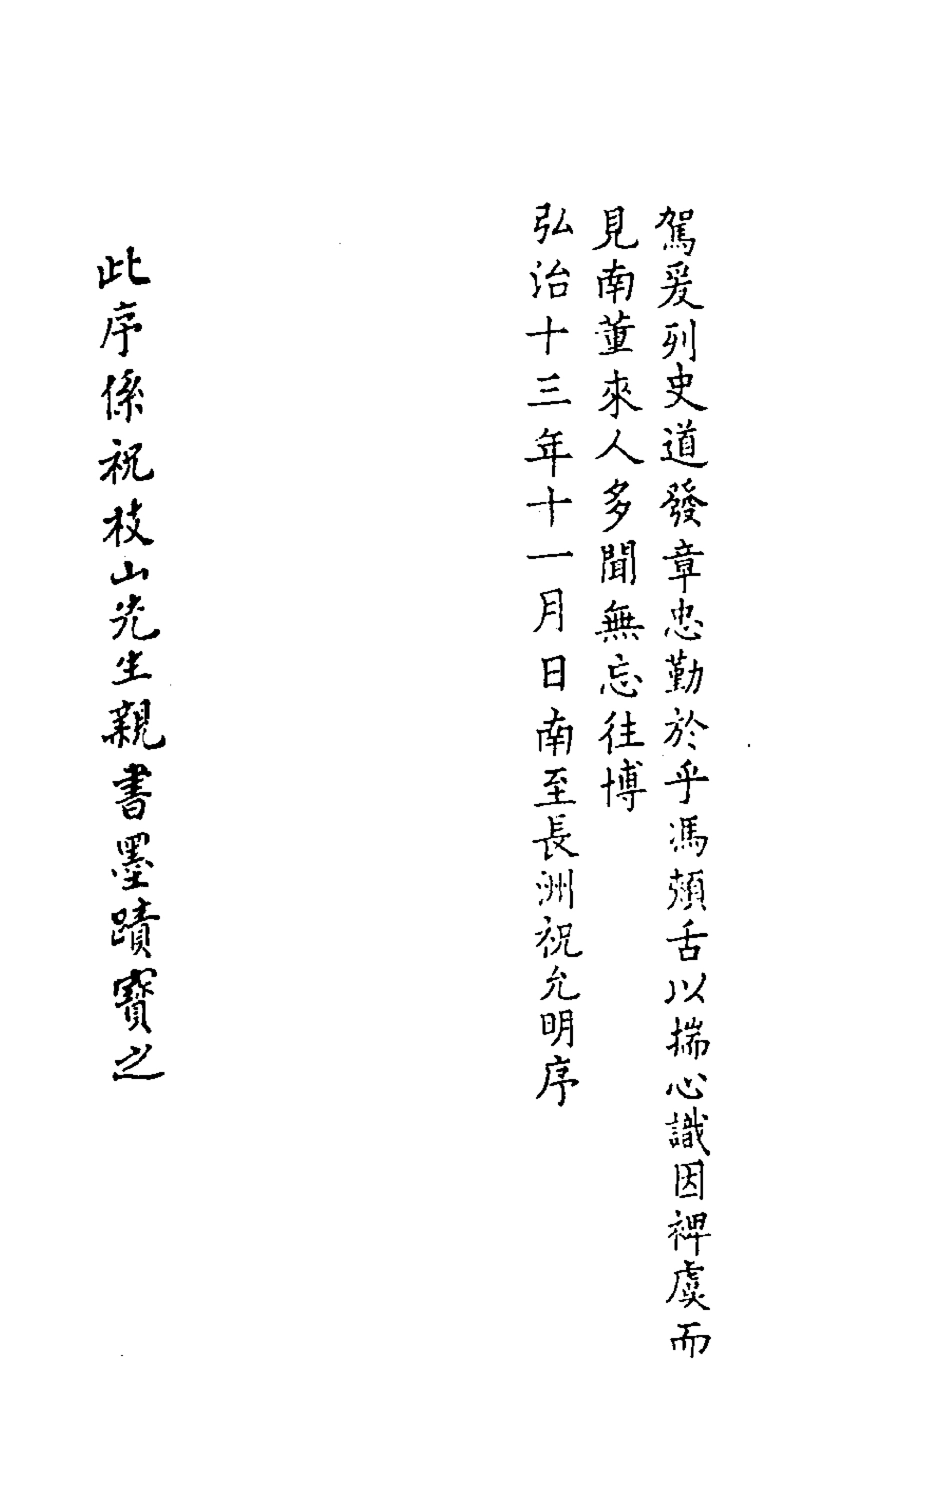 駕爰列史道發章忠勤於乎馮頰舌以揣心識因裨虞而
見南董來人多聞無忘往博
弘治十三年十一月日南至長洲祝允明序
此序係祝枝山先生親書墨蹟寶之